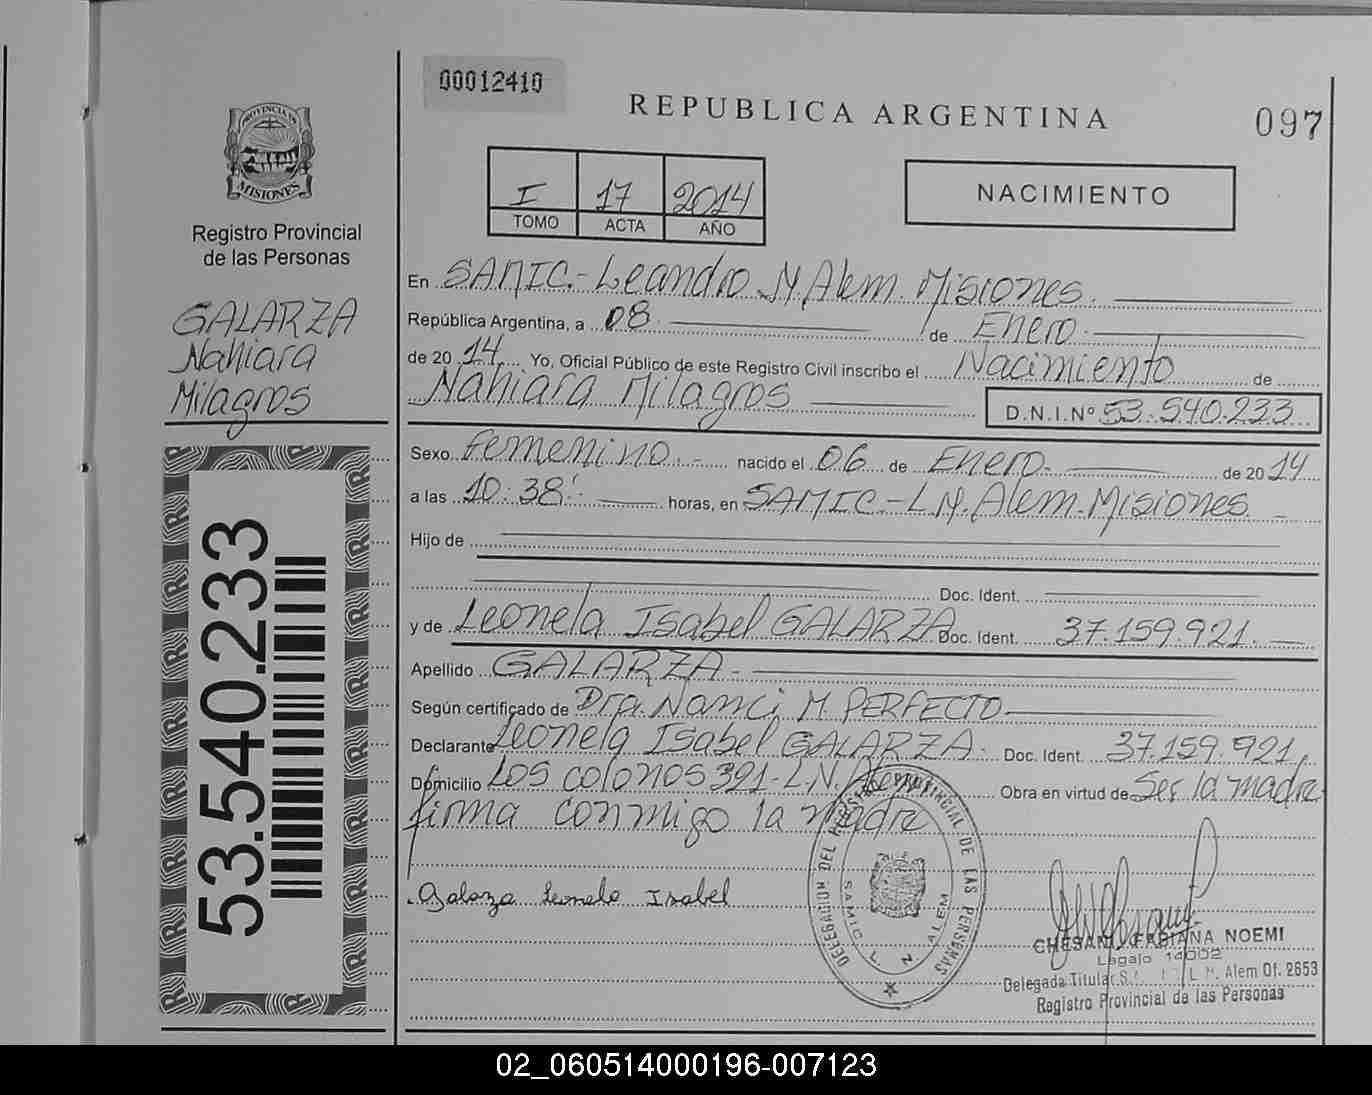 00012410
REPUBLICA ARGENTINA
097
PROVINCIA DE
MISIONES
Registro Provincial
de las Personas
GALARZA
Nahiara
Milagros
I 17 2014
TOMO ACTA AÑO
NACIMIENTO
En SAMIC.-Leandro N. Alem. Misiones.
República Argentina, a 08 de Enero.
de 20 14 Yo, Oficial Público de este Registro Civil inscribo el Nacimiento de
Nahiara Milagros D.N.I.Nº 53.540.233
Sexo femenino.- nacido el 06 de Enero. de 20 14
a las 10:38' horas, en SAMIC.-L.N. Alem.Misiones.
Hijo de
Doc. Ident.
y de Leonela Isabel GALARZA Doc. Ident. 37.159.921.
Apellido GALARZA.
Según certificado de Dra. Nanci M. PERFECTO.
Declarante Leonela Isabel GALARZA. Doc. Ident. 37.159.921,
Domicilio Los colonos 391-L.N. Alem Obra en virtud de Ser la madre
firma conmigo la madre
Galarza Leonela Isabel
DELEGACION DEL REGISTRO PROVINCIAL DE LAS PERSONAS
SAMIC L. N. ALEM
CHESANI, FABIANA NOEMI
Legajo 14002
Delegada Titular L. N. Alem Of. 2653
Registro Provincial de las Personas
53.540.233
02_060514000196-007123